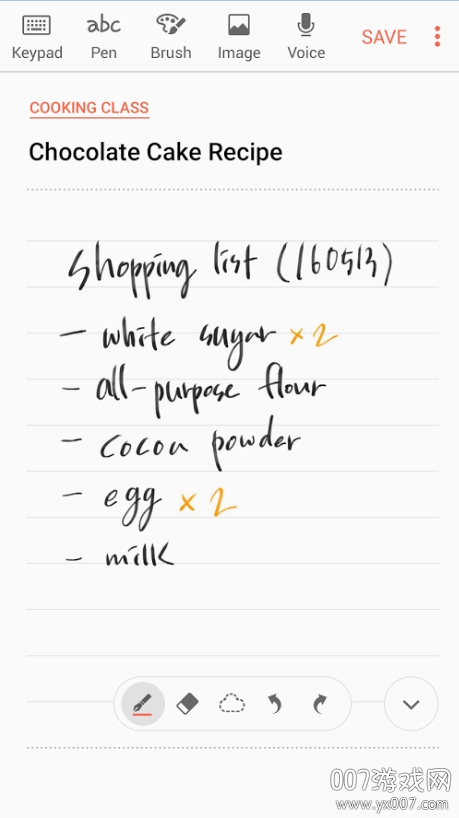 Keypad Pen Brush Image Voice SAVE
abc
COOKING CLASS
Chocolate Cake Recipe
Shopping list (160513)
- white sugar ×2
- all-purpose flour
- cocoa powder
- egg ×2
- milk
007游戏网
www.yx007.com